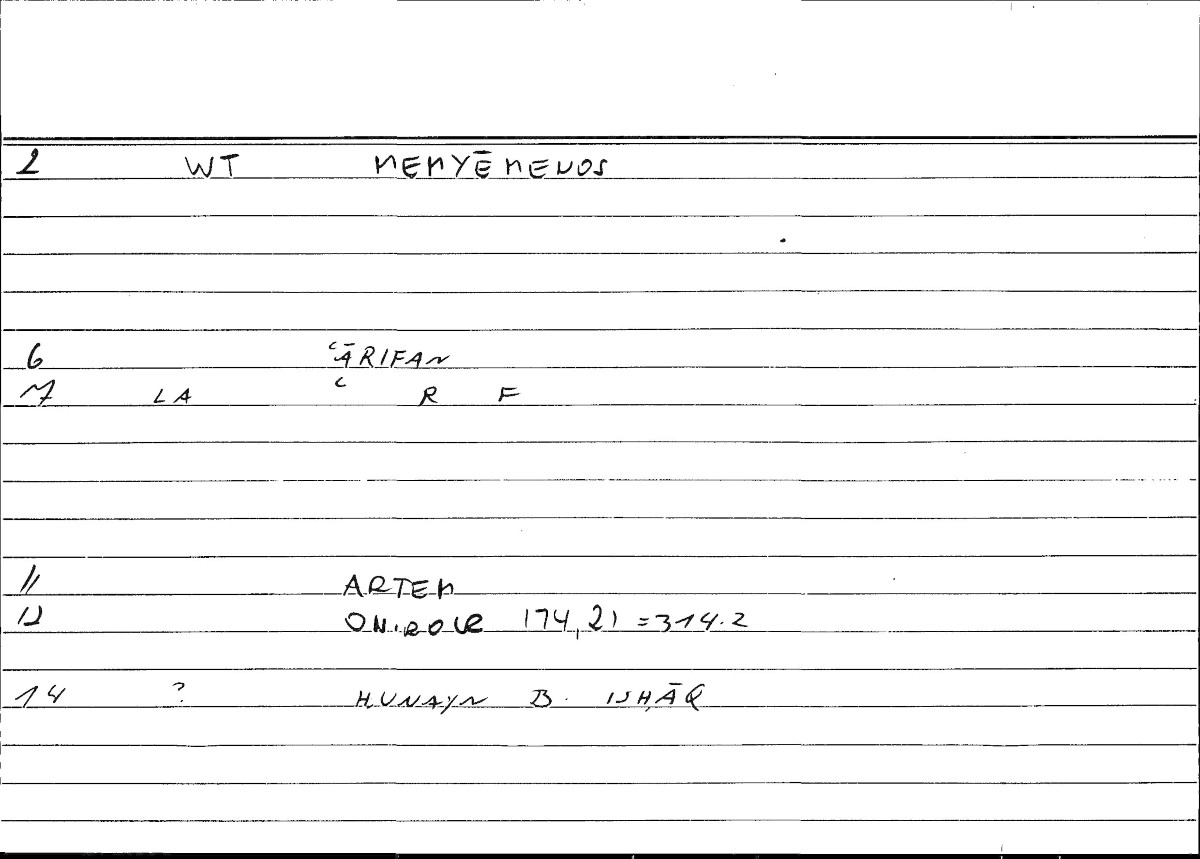 2 WT MEMYĒMENOS
6 ʿĀRIFAN
7 LA ʿ R F
11 ARTEM
12 ONIROCR 174,21 =314.2
14 ? ḤUNAYN B. ISḤĀQ